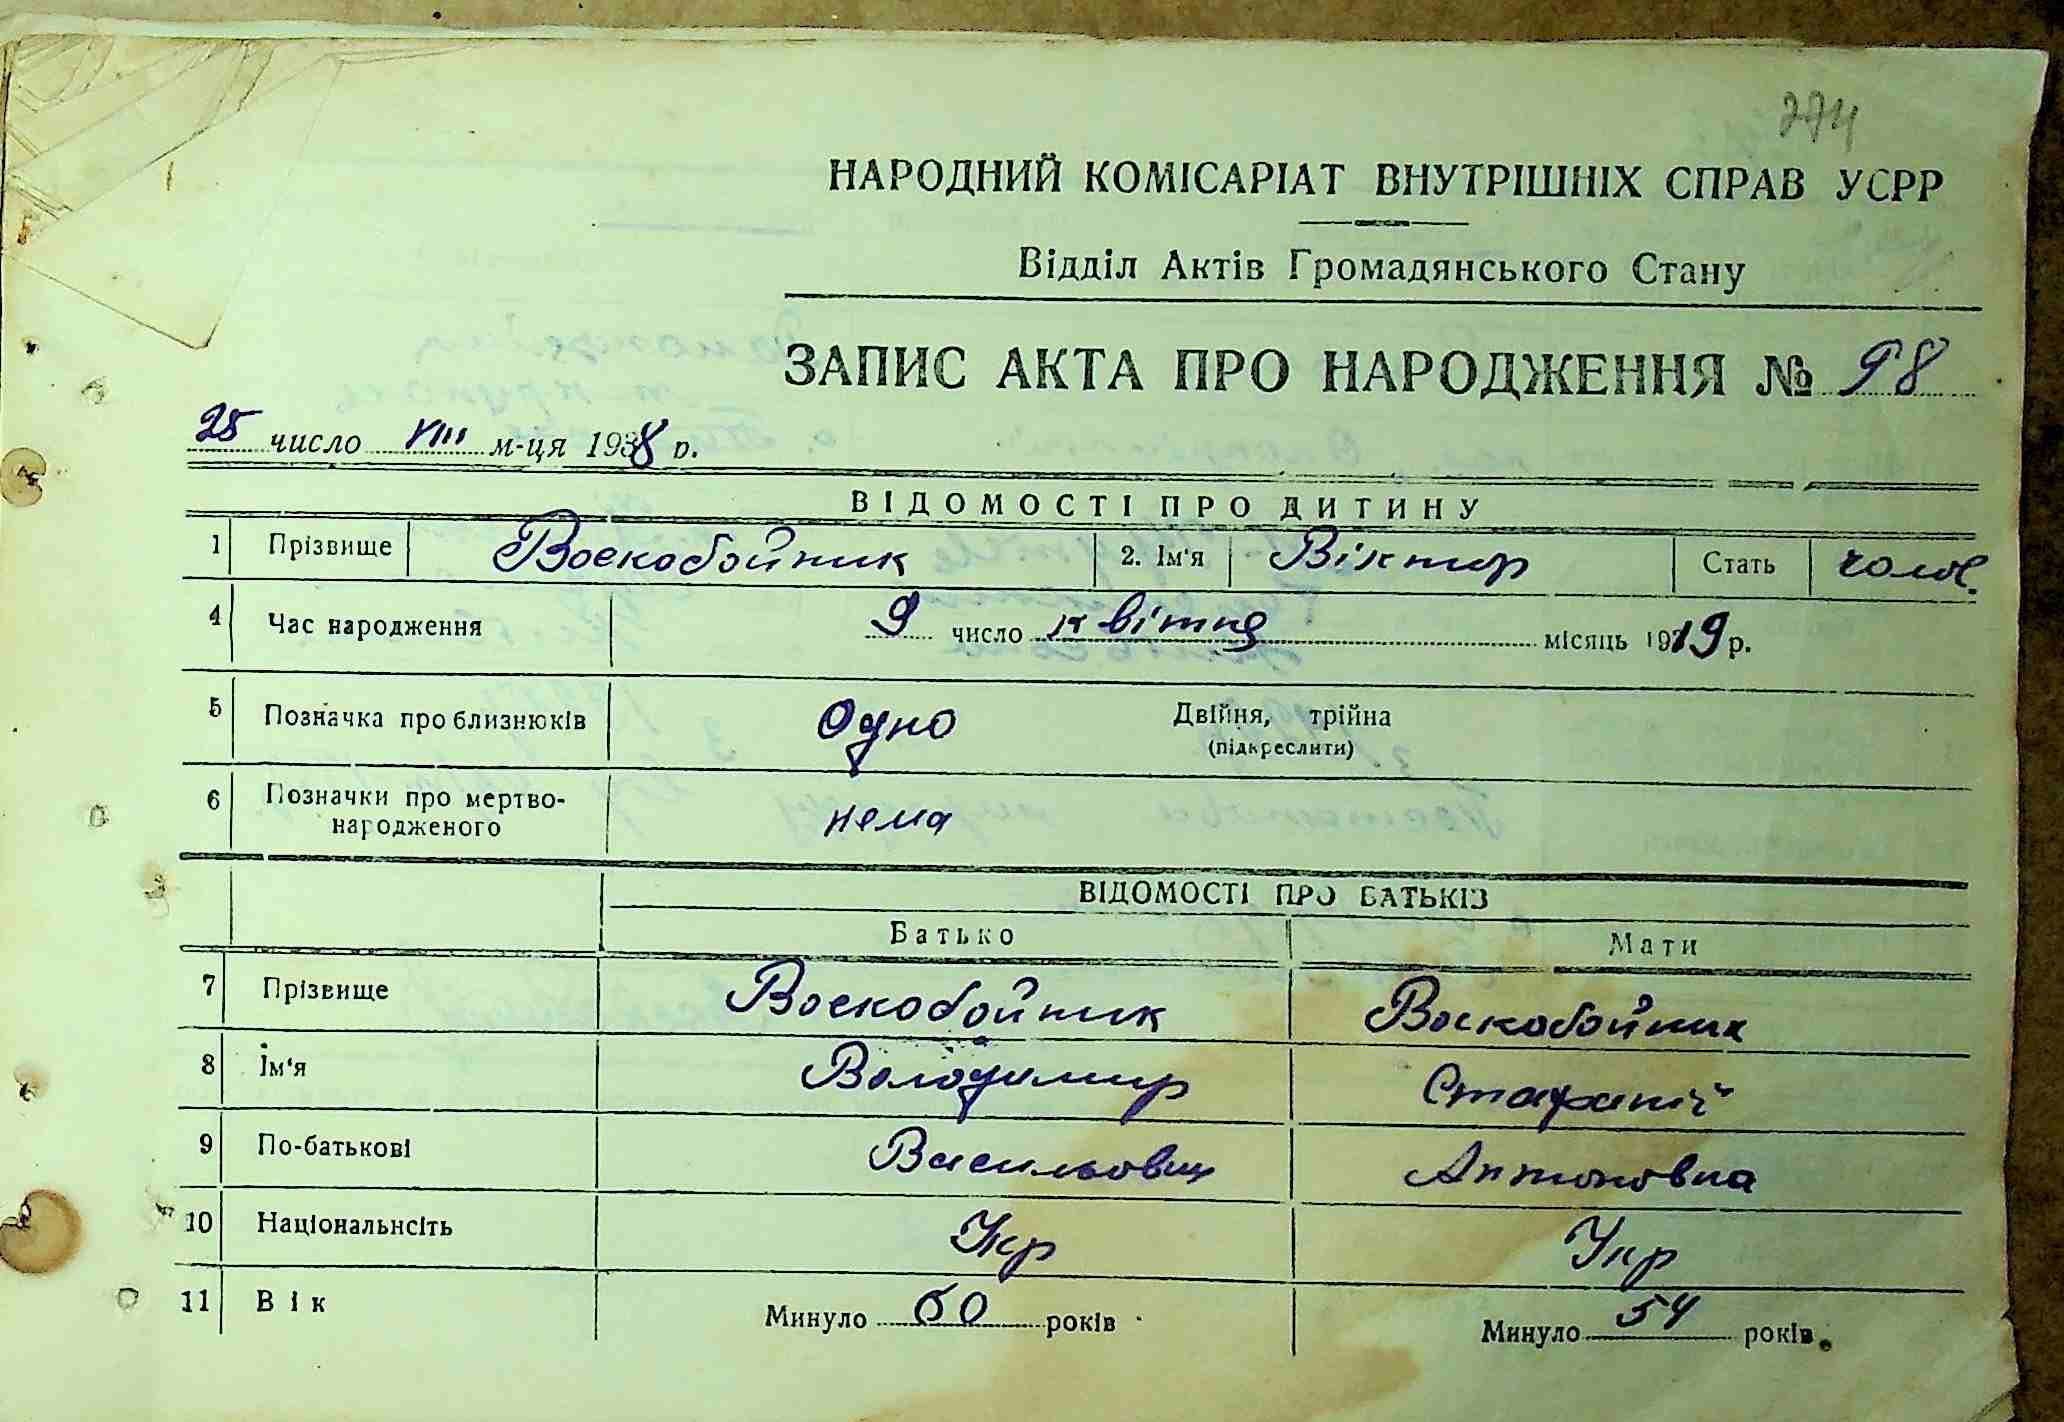 274
НАРОДНИЙ КОМІСАРІАТ ВНУТРІШНІХ СПРАВ УСРР
Відділ Актів Громадянського Стану
ЗАПИС АКТА ПРО НАРОДЖЕННЯ № 98
25 число VIII м-ця 1938 р.
ВІДОМОСТІ ПРО ДИТИНУ
1 Прізвище Воскобойник 2. Ім'я Віктор Стать чолов.
4 Час народження 9 число квітня місяць 1919 р.
5 Позначка про близнюків Одно Двійня, трійна
(підкреслити)
6 Позначки про мертво-
народженого нема
ВІДОМОСТІ ПРО БАТЬКІВ
Батько Мати
7 Прізвище Воскобойник Воскобойник
8 Ім'я Володимир Стафаній
9 По-батькові Васильович Антоновна
10 Національнсіть Укр Укр
11 Вік Минуло 60 років Минуло 54 років.